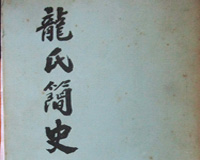 龍氏簡史